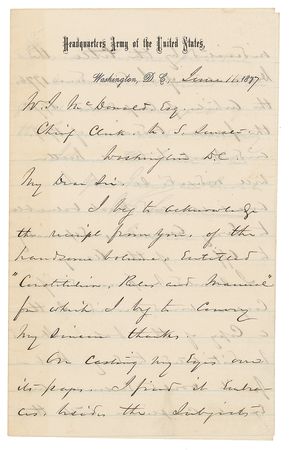 Headquarters Army of the United States,
Washington, D.C., June 11. 1877
W. J. McDonald, Esq.
Chief Clerk. U. S. Senate
Washington D.C.
My Dear Sir.
I beg to acknowledge
the receipt from you, of the
handsome volume, Entitled
"Constitution, Rules and Manual"
for which I beg to Convey
my sincere thanks.
On casting my Eyes over
its pages. I find it Embra-
ces, besides the Subjects